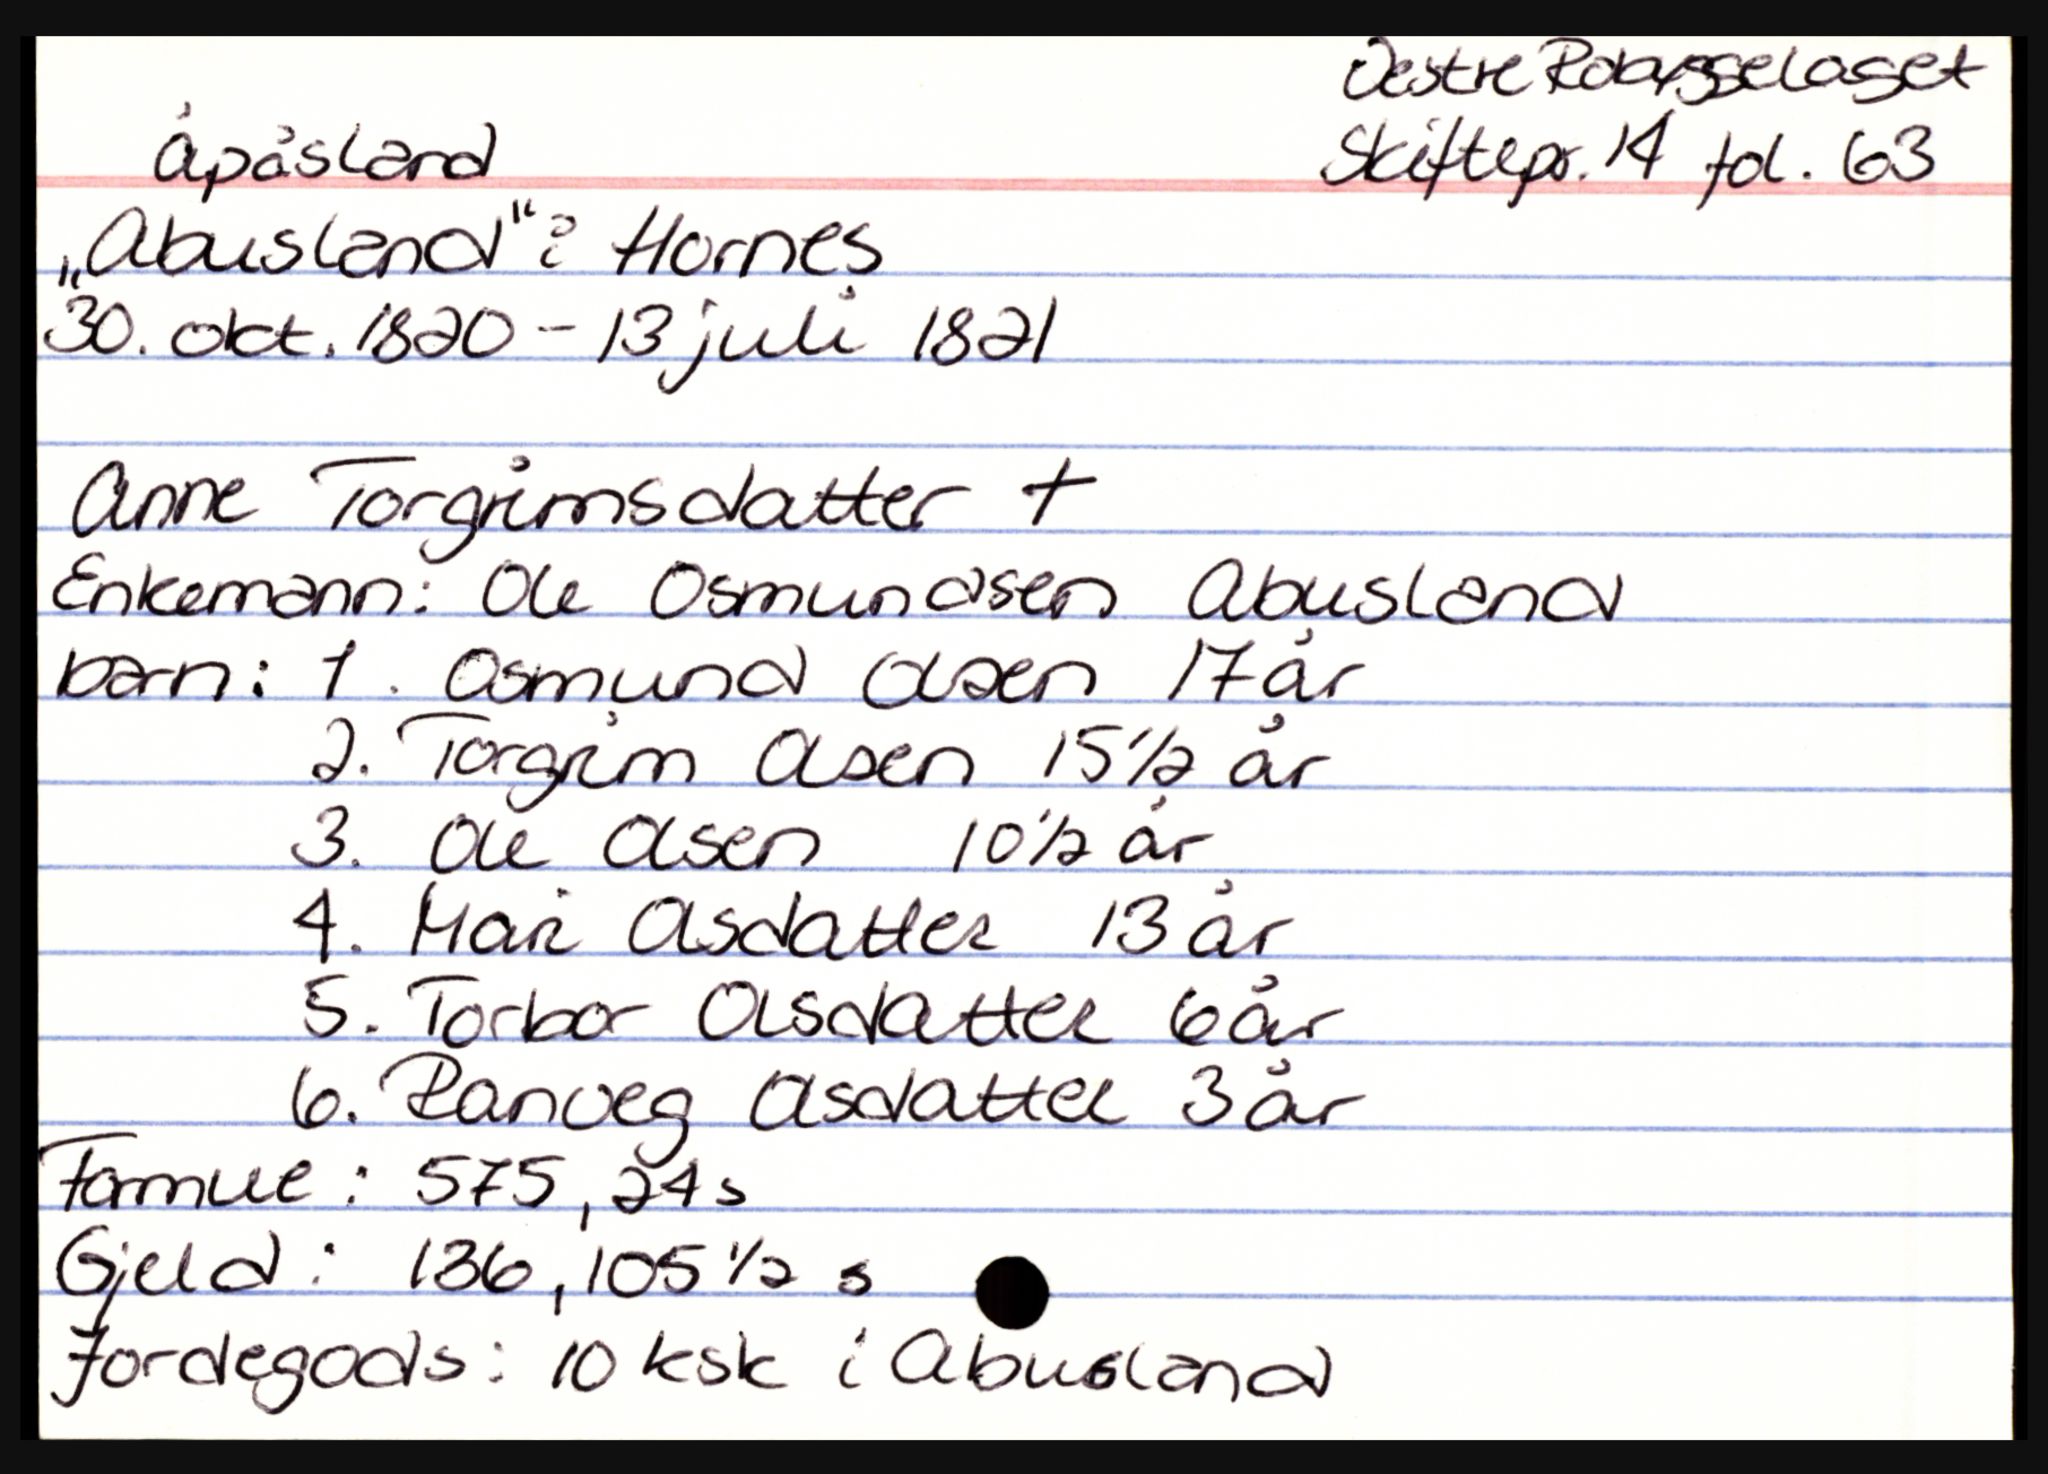 Vestre Robyggelaget
Åpåsland Skiftepr. 14 fol. 63
„Abusland" i Hornes
30. okt. 1820 - 13 juli 1821
Anne Torgrimsdatter †
Enkemann: Ole Osmundsen Abusland
barn: 1. Osmund Olsen 17 år
2. Torgrim Olsen 15 1/2 år
3. Ole Olsen 10 1/2 år
4. Mari Olsdatter 13 år
5. Torbor Olsdatter 6 år
6. Ranveg Olsdatter 3 år
Formue: 575, 24 s
Gjeld: 136, 105 1/2 s
Jordegods: 10 ksk i Abusland